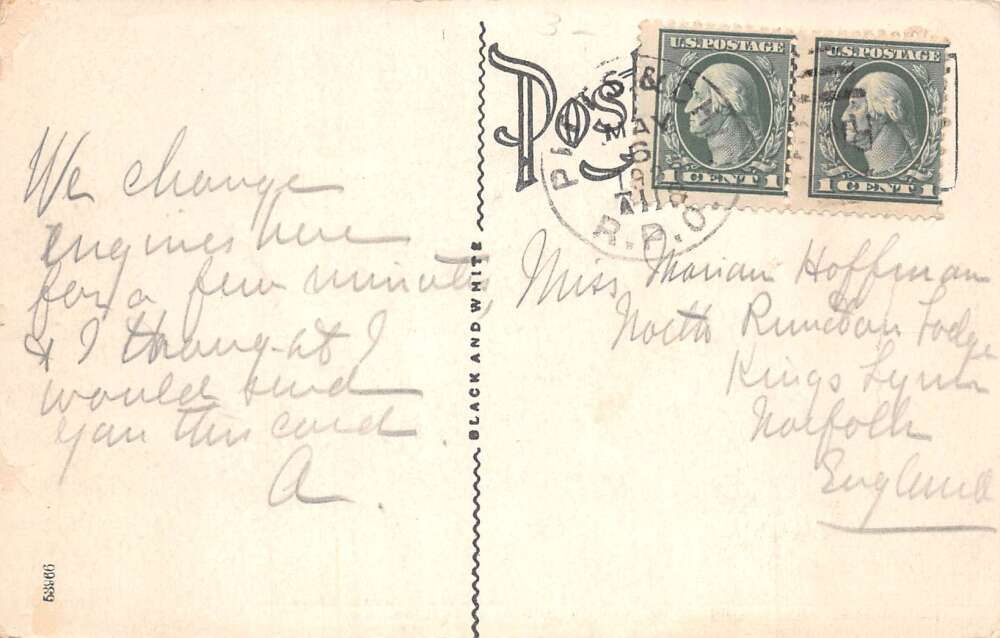 We change
engines here
for a few minutes,
& I thought I
would send
you this card
A
53966
BLACK AND WHITE
Pos
U.S. POSTAGE
1 CENT 1
U.S. POSTAGE
1 CENT 1
PITTS. & CHI
MAY
6
R.P.O.
Miss Marian Hoffman
North Runcton Lodge
Kings Lynn
Norfolk
England